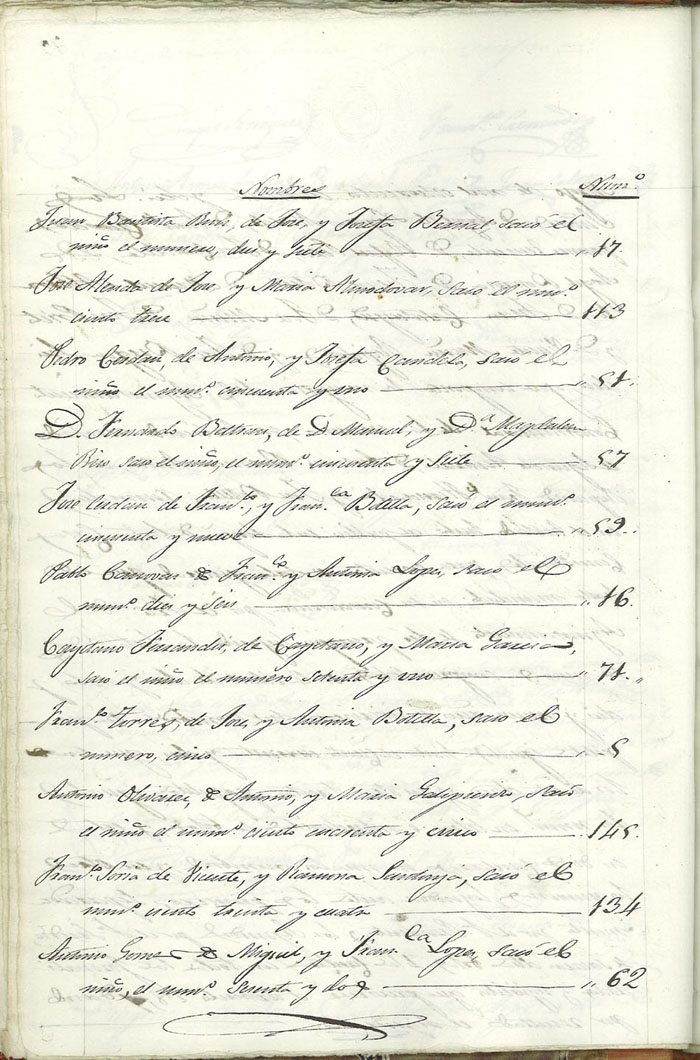 Nombres Num.º
Juan Bautista Riu, de Jose, y Josefa Bernal sacó el
niño el numero, dies y siete 17.
Jose Alenda de Jose, y Maria Almodovar, saco el num.º
ciento trece 113
Pedro Cerdan, de Antonio, y Josefa Candela, sacó el
niño el num.º cincuenta y uno 51.
D. Fernando Beltran, de D Manuel, y D.ª Magdalena
saco el niño, el num.º cincuenta y siete 57
Jose Cerdan de Fran.co, y Fran.ca Botella, sacó el num.º
cincuenta y nueve 59.
Pablo Canovas de Fran.co y Antonia Lopes, saco el
num.º dies y seis 16.
Cayetano Fernandes, de Cayetano, y Maria Garcia,
saco el niño el numero setenta y uno 71.
Fran.co Torres, de Jose, y Antonia Botella, saco el
numero, cinco 5
Antonio Olivares, de Antonio, y Maria Galipienso, sacó
el niño el num.º ciento cuarenta y cinco 145.
Fran.co Soria de Vicente, y Ramona, sacó el
num.º ciento treinta y cuatro 134
Antonio Gomes de Miguel, y Fran.ca Lopes, sacó el
niño, el num.º sesenta y dos 62